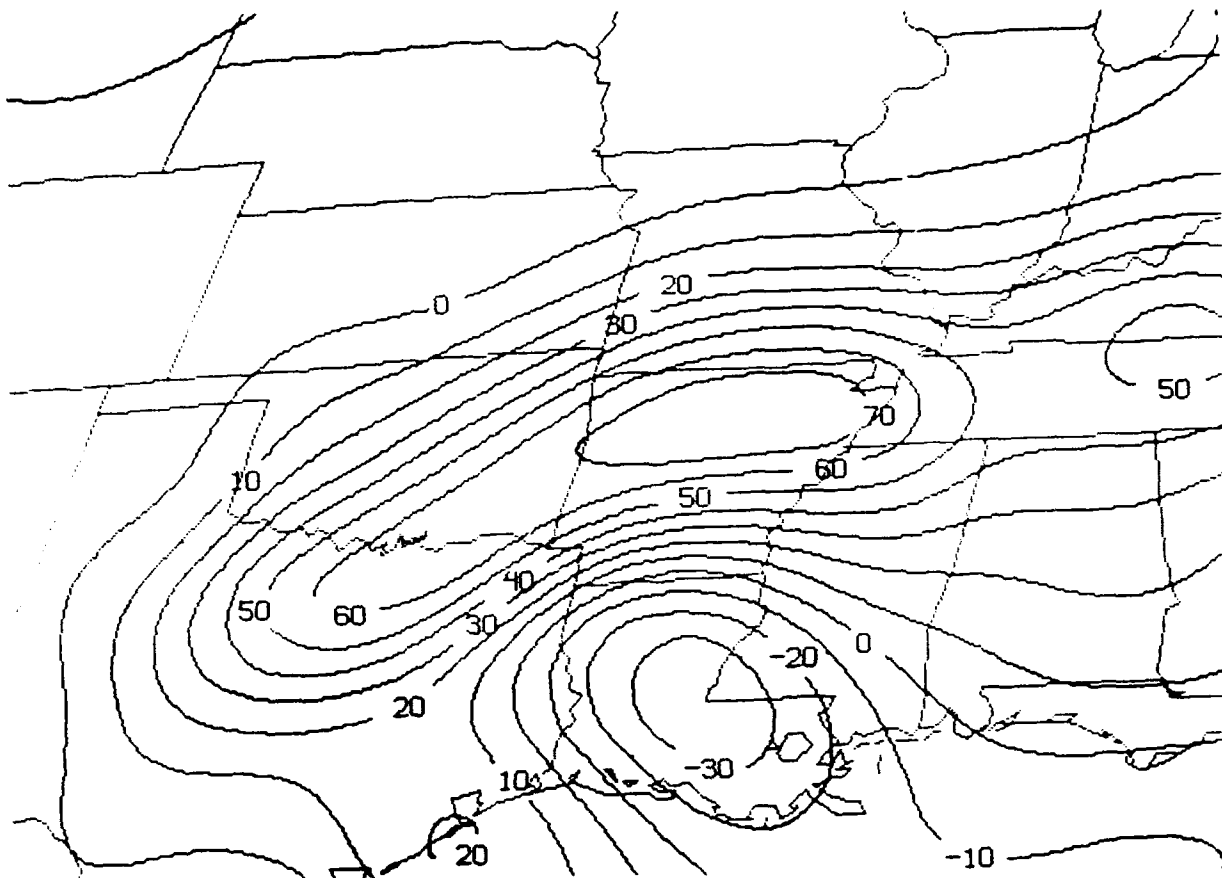 0
20
30
70
50
10
60
50
40
50
60
30
0
-20
20
-30
10
20
-10